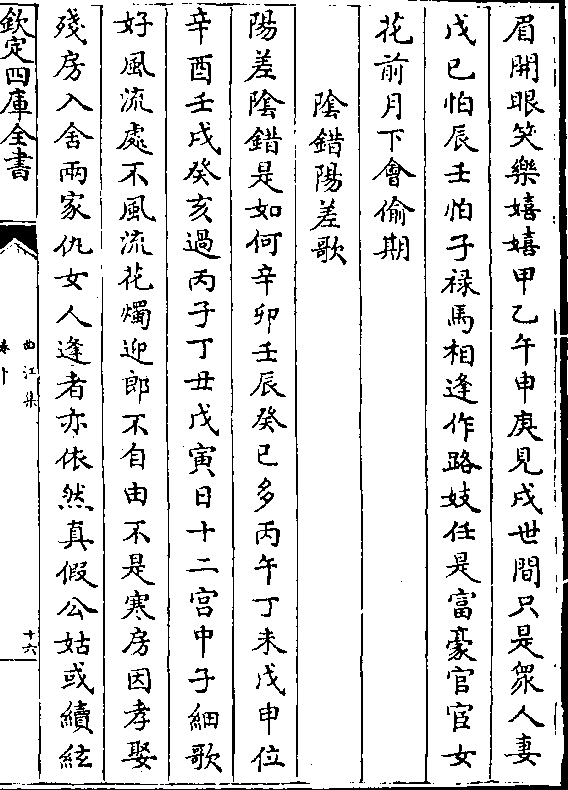 眉開眼笑樂嬉嬉甲乙午申庚見戌世間只是衆人妻
戊己怕辰壬怕子禄馬相逢作路妓任是富豪官宦女
花前月下會偷期
陰錯陽差歌
陽差陰錯是如何辛卯壬辰癸巳多丙午丁未戊申位
辛酉壬戌癸亥過丙子丁丑戊寅日十二宮中子細歌
好風流處不風流花燭迎郎不自由不是寒房因孝娶
殘房入舍兩家仇女人逢者亦依然真假公姑或續絃
欽定四庫全書
十六